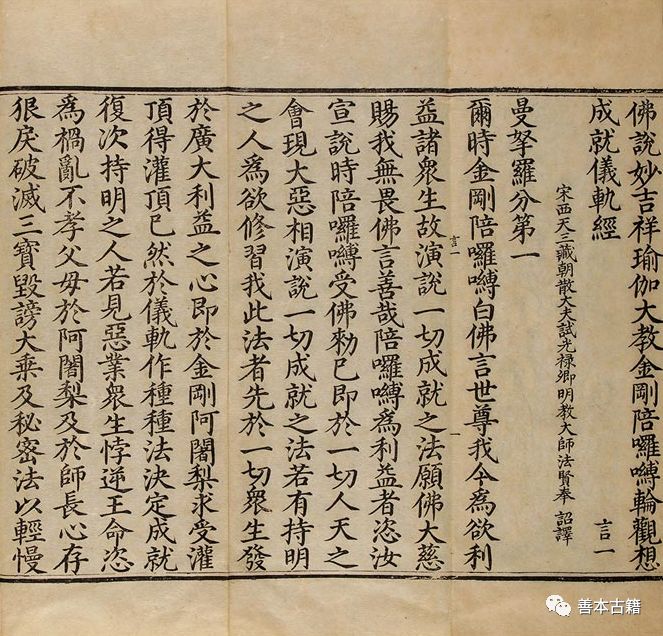 佛說妙吉祥瑜伽大教金剛陪囉嚩輪觀想
成就儀軌經 言一
宋西天三藏朝散大夫試光祿卿明教大師法賢奉 詔譯
曼拏羅分第一
爾時金剛陪囉嚩白佛言世尊我今為欲利
言一 一
益諸衆生故演說一切成就之法願佛大慈
賜我無畏佛言善哉陪囉嚩為利益者恣汝
宣說時陪囉嚩受佛勑已即於一切人天之
會現大惡相演說一切成就之法若有持明
之人為欲修習我此法者先於一切衆生發
於廣大利益之心即於金剛阿闍梨求受灌
頂得灌頂已然於儀軌作種種法決定成就
復次持明之人若見惡業衆生悖逆王命恣
為禍亂不孝父母於阿闍梨及於師長心存
狠戾破滅三寶毀謗大乗及秘密法以輕慢
善本古籍